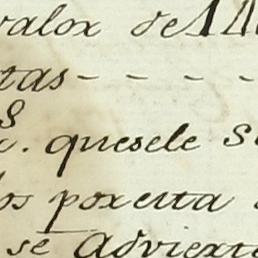 valor de 1
tas - - - -
s. quesele s
los por esta
se advierte